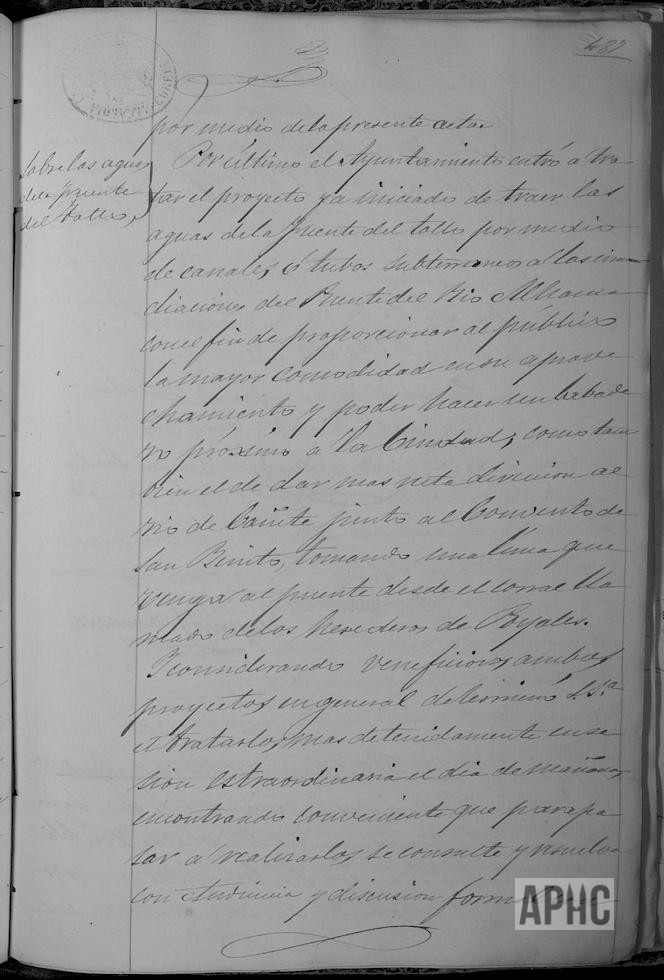 487
por medio de la presente acta.
Sobre las aguas
de la fuente
del Tollo,
Por último el Ayuntamiento entró á tra-
tar el proyecto ya iniciado de traer las
aguas de la fuente del tollo por medio
de canales, ó tubos subterraneos á las inme
diaciones del Puente del Rio Alhama
con el fin de proporcionar al público
la mayor comodidad en su aprove
chamiento y poder hacer un labade
ro próximo a la Ciudad; como tam
bien el de dar mas recta direccion al
rio de Cañete junto al Convento de
San Benito, tomando una linea que
venga al puente desde el corral lla
mado de los herederos de Royales.
Y considerando veneficiosos ambos
proyectos en general determinó S.Sª
el tratarlos mas detenidamente en se
sion estraordinaria el dia de mañana,
encontrando conveniente que para pa
sar á realizarlos, se consulte y resuelva
con audiencia y discusion
APHC